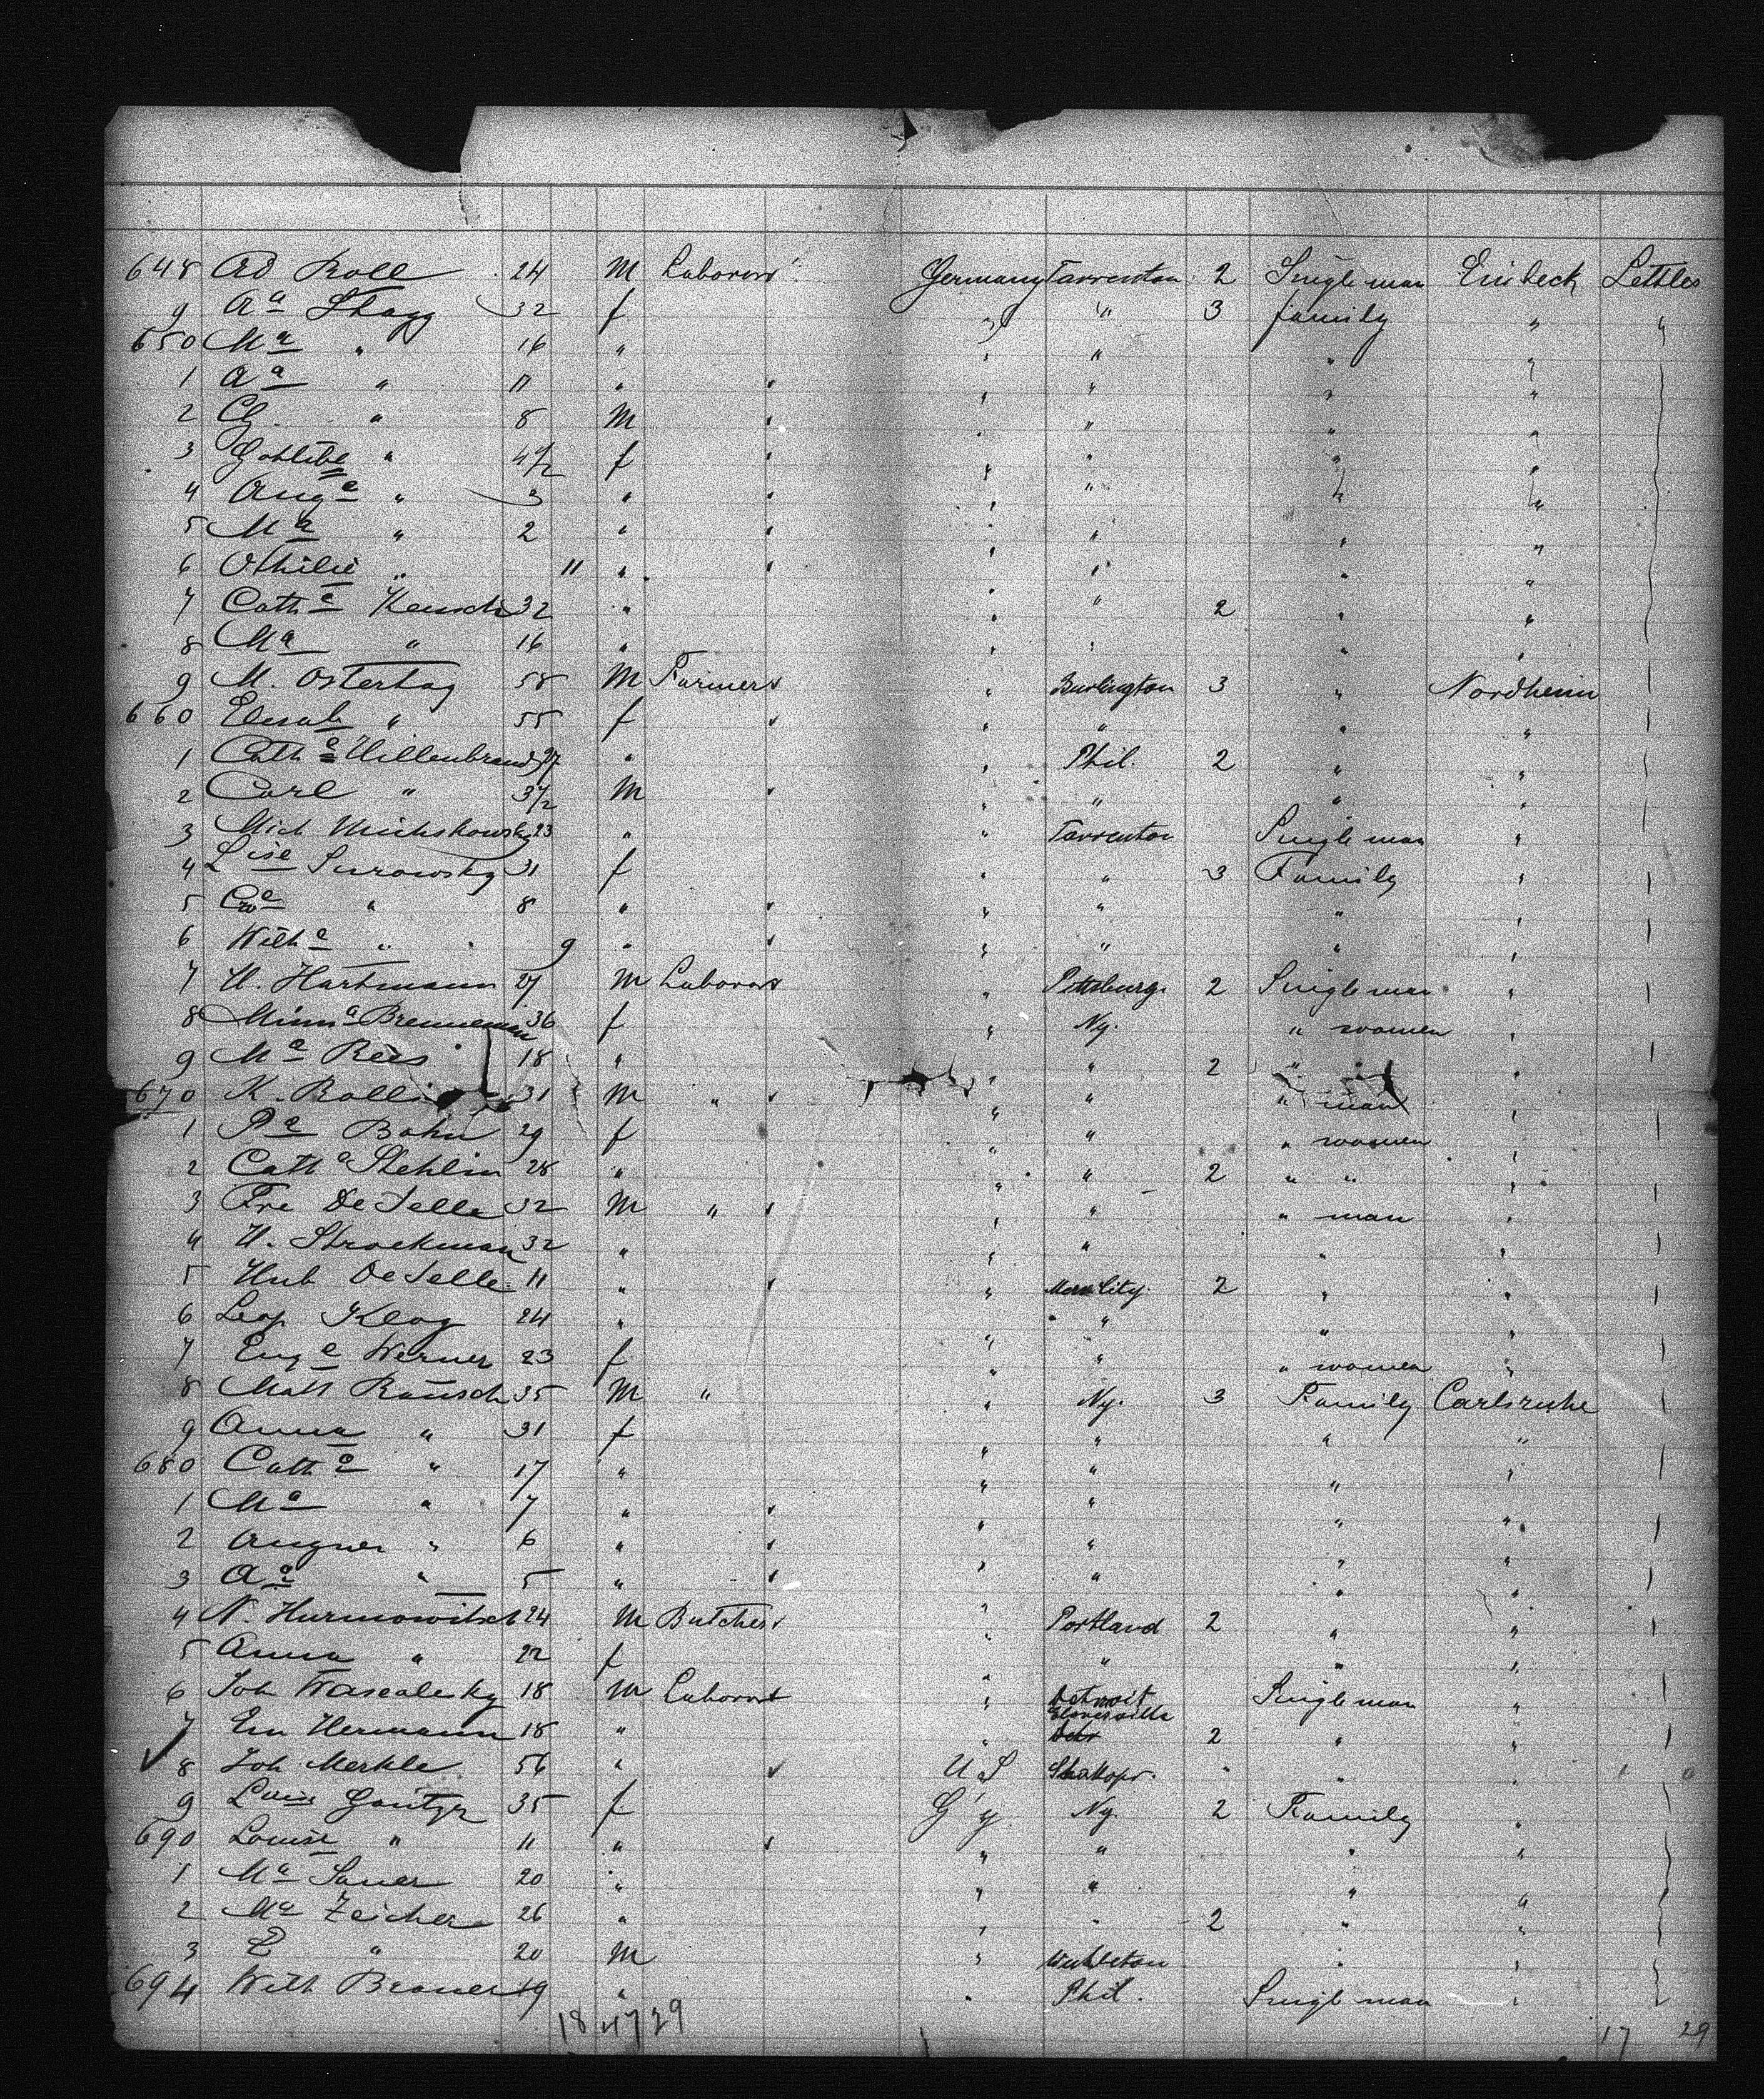 648 Ad Roll 24 M Laborer Germany Tarrenton 2 Single man Einbeck Settler
9 Aa Stagg 32 f " " 3 family " "
650 Ma " 16 " " " " "
1 Aa " 11 " " " " " "
2 Ch. " 8 M " " " " "
3 Gottlibe " 4 1/2 f " " " " "
4 Auga " 3 " " " " " "
5 Ma " 2 " " " " " "
6 Othilie " 11 " " " " " "
7 Catha Keusch 32 " " " 2 " "
8 Ma " 16 " " " " "
9 M. Ostertag 58 M Farmer " Burlington 3 " Nordheim
660 Elisab " 55 f " " " " "
1 Catha Hillenbrand 27 " " Phil. 2 " "
2 Carl " 3 1/2 M " " " " "
3 Mich 23 " " Tarrenton Single man "
4 Lise Surowsky 31 f " " 3 Family "
5 " 8 " " " " " "
6 Wilha " 9 " " " " " "
7 H. Hartmann 27 M Laborer " Pittsburg. 2 Single man "
8 Minna Brenneman 36 f " Ny. " women "
9 Ma Rees 18 " " " 2 " " "
670 K. Rolli 31 M " " " " " man "
1 Pa Bohn 29 f " " " women "
2 Catha Stehlin 28 " " " 2 " " "
3 Fre DeSelle 32 M " " " " " man "
4 H. Strockman 32 " " " " "
5 Hub DeSelle 11 " " " City. 2 " "
6 Leop Klog 24 " " " " "
7 Euge Werner 23 f " " " women "
8 Matt Rausch 35 M " " Ny. 3 Family Carlsruhe
9 Anna " 31 f " " " "
680 Catha " 17 " " " " "
1 Ma " 7 " " " " " "
2 " 6 " " " " " "
3 Aa " 5 " " " " " "
4 N. Hurmowitsch 24 M Butcher " Portland 2 " "
5 Anna " 22 f " " " "
6 Joh 18 M Laborer " Detroit Single man "
7 Em Hermann 18 " " Gloversville 2 " "
8 Joh Merkle 56 " " U S Shakopr. " " "
9 Luise Gantzr 35 f G'y Ny. 2 Family "
690 Louise " 11 " " " " " "
1 Ma Sauer 20 " " " " "
2 Ma Zeicher 26 " " " 2 " "
3 E " 20 M " " "
694 Wilh Brauer 19 " " Phil. Single man "
18 47 29
17 29